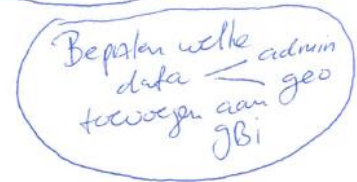 Bepalen welke
data < admin
geo
toevoegen aan
gBi